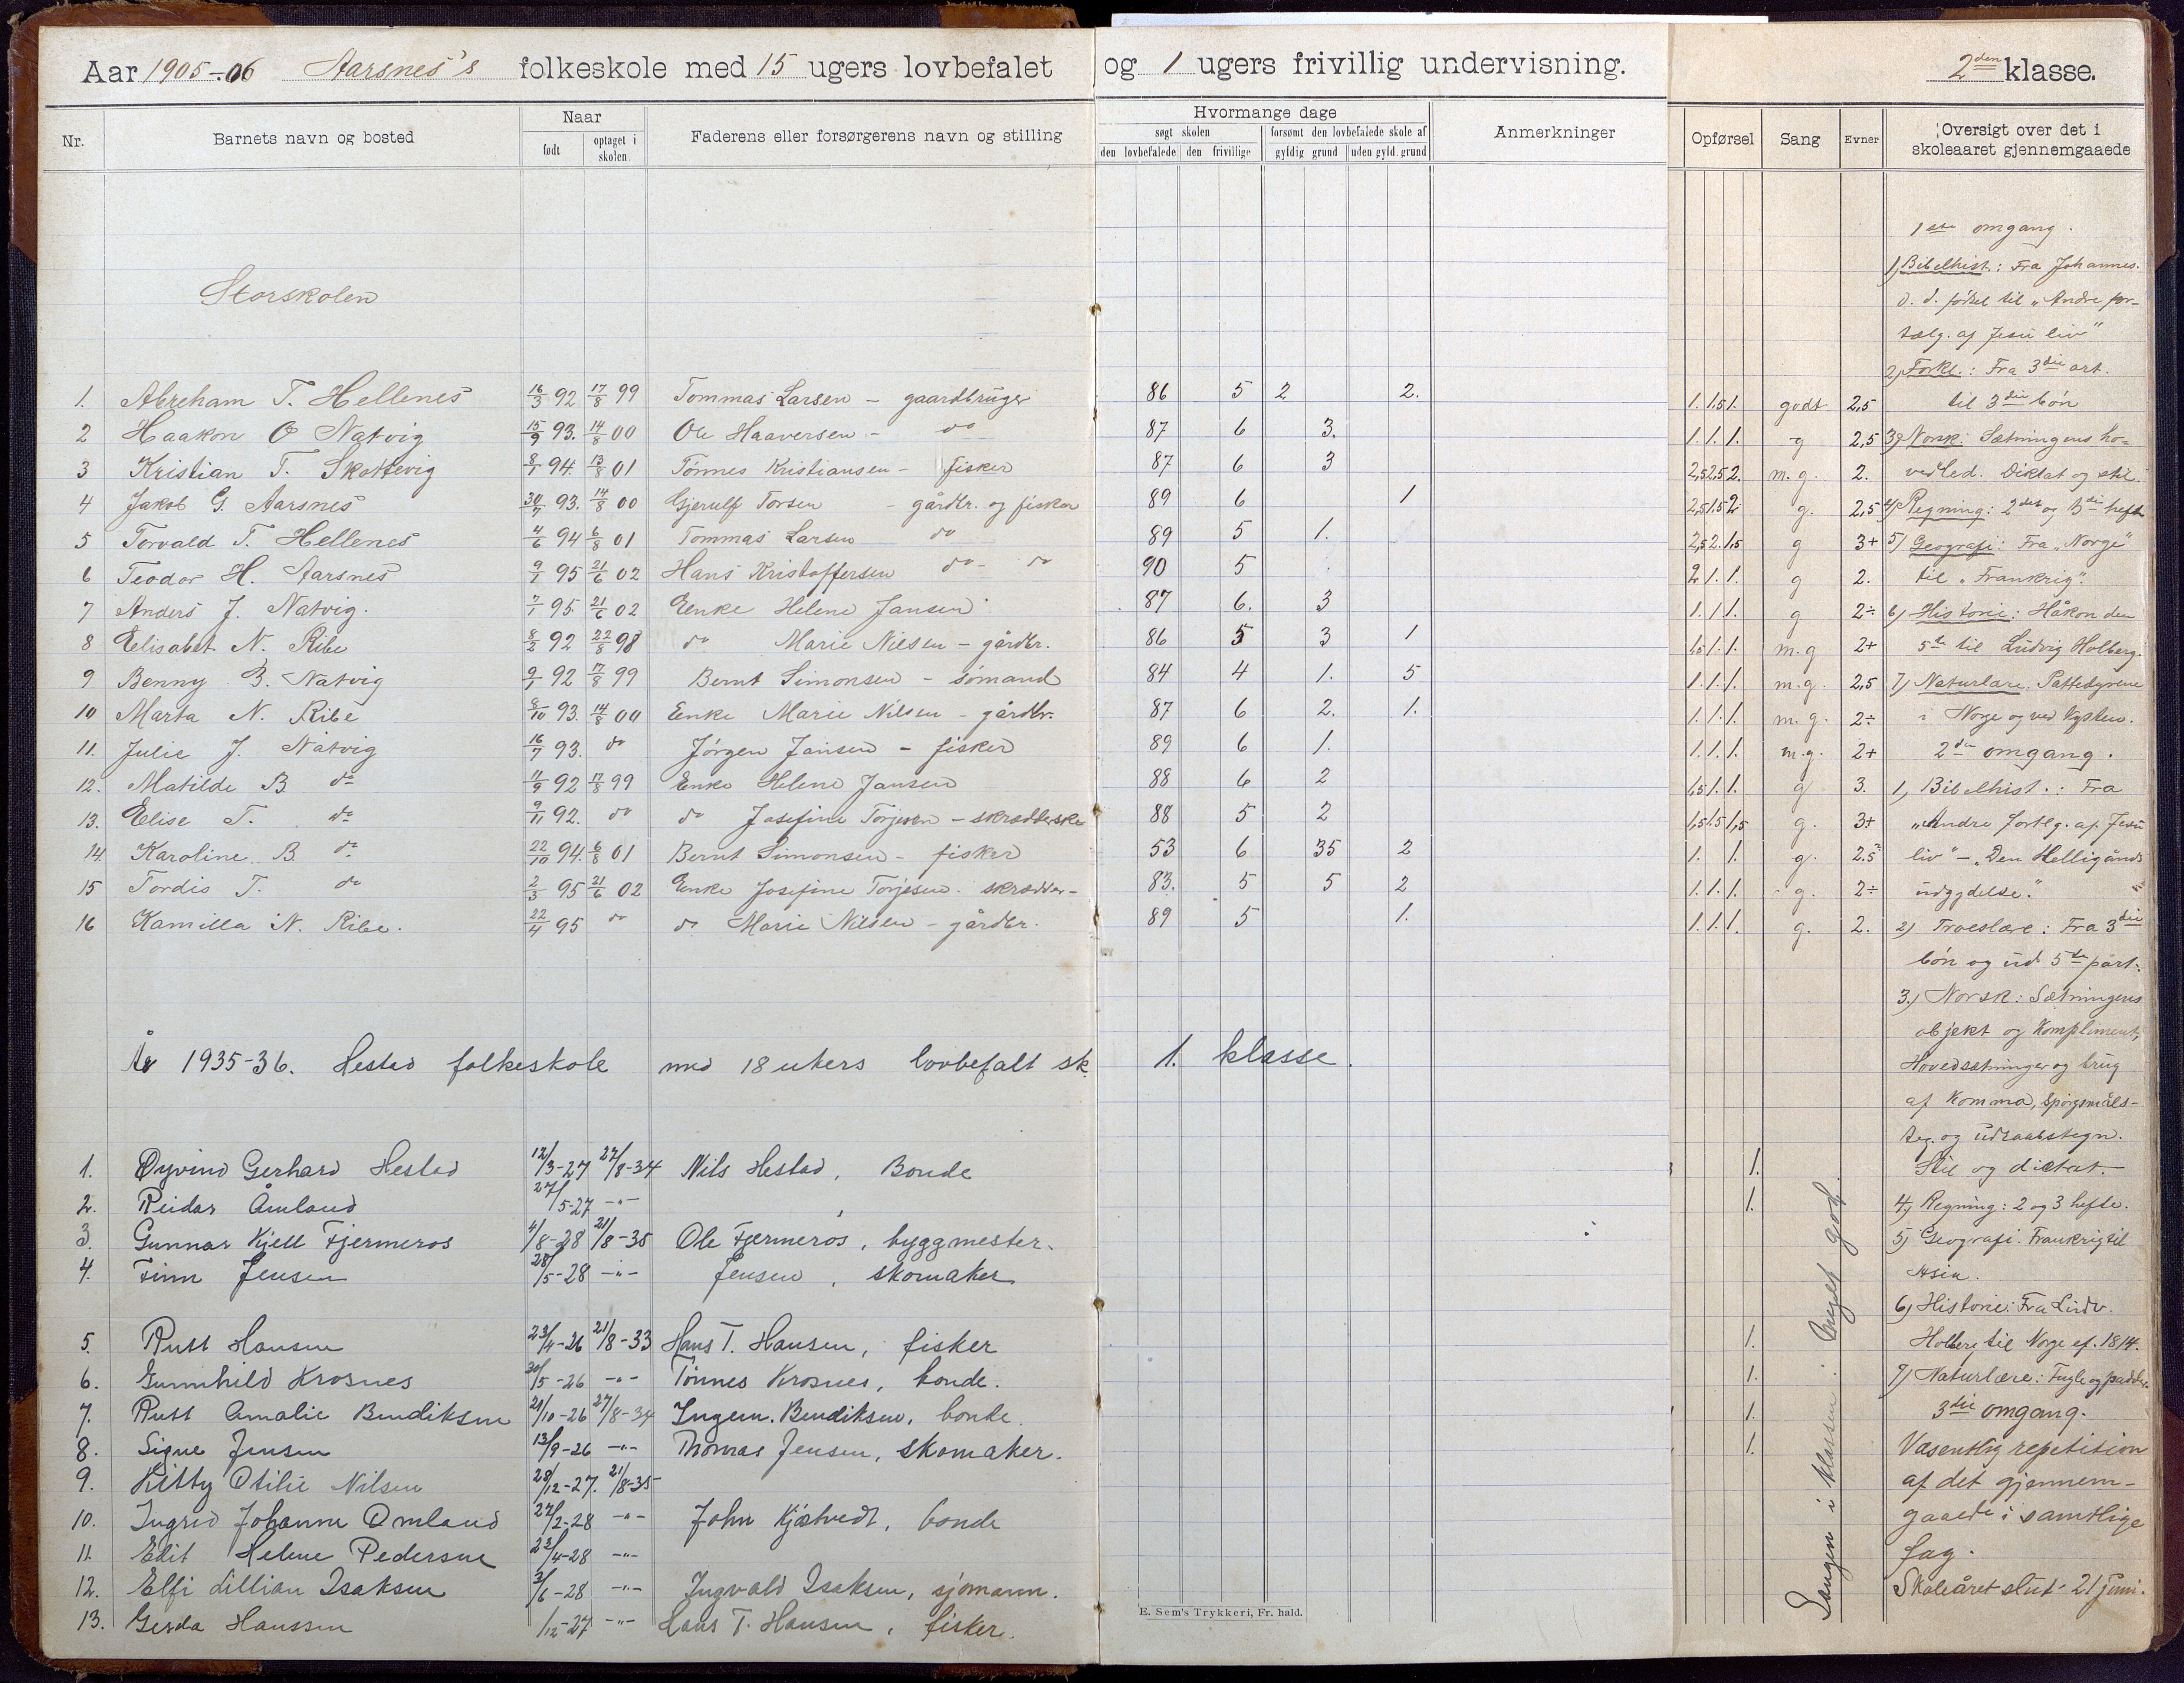 Aar 1905-06 Aarsnes's folkeskole med 15 ugers lovbefalet og 1 ugers frivillig undervisning. 2den klasse.
Nr. Barnets navn og bosted Naar Faderens eller forsørgerens navn og stilling Hvormange dage Anmerkninger Opførsel Sang Evner Oversigt over det i skoleaaret gjennemgaaede
født optaget i skolen søgt skolen forsømt den lovbefalede skole af
den lovbefalede den frivillige gyldig grund uden gyld. grund
Storskolen
1. Abreham T. Hellenes 16/3 92 17/8 99 Tommas Larsen - gaardbruger 86 5 2 2. 1. 1.5 1. godt 2,5
2 Haakon O Natvig 15/9 93. 14/8 00 Ole Haaversen - do 87 6 3. 1. 1. 1. g 2,5
3 Kristian T. Skottevig 8/1 94. 13/8 01 Tønnes Kristiansen - fisker 87 6 3 2,5 2,5 2. m. g. 2.
4 Jakob G. Aarsnes 30/7 93. 14/8 00 Gjerulf Torsen - gårdbr. og fisker 89 6 1 2,5 1.5 2 g. 2,5
5 Torvald T. Hellenes 4/6 94 6/8 01 Tommas Larsen do 89 5 1. 2,5 2. 1,5 g 3+
6 Teodor H. Aarsnes 9/1 95 21/6 02 Hans Kristoffersen do - do 90 5 2 1. 1. g 2.
7 Anders J. Natvig. 7/1 95 21/6 02 Enke Helene Jansen 87 6. 3 1. 1. 1. g 2÷
8 Elisabet N. Ribe 8/2 92 22/8 98 do Marie Nilsen - gårdbr. 86 5 3 1 1,5 1. 1. m.g 2+
9 Benny B. Natvig 9/1 92 17/8 99 Bernt Simonsen - sømand 84 4 1. 5 1. 1. 1. m.g. 2,5
10 Marta N. Ribe 8/10 93. 14/8 00 Enke Marie Nilsen - gårdbr. 87 6 2. 1. 1. 1. 1. m. g. 2÷
11. Julie J. Natvig 16/7 93. do Jørgen Jansen - fisker 89 6 1. 1. 1. 1. m.g. 2+
12. Matilde B do 11/9 92 17/8 99 Enke Helene Jansen 88 6 2 1,5 1. 1. g 3.
13. Elise T. do 9/11 92. do do Josefine Torjesen - skrædderske 88 5 2 1,5 1.5 1,5 g. 3+
14 Karoline B. do 22/10 94. 6/8 01 Bernt Simonsen - fisker 53 6 35 2 1. 1. g. 2.5
15 Tordis T. do 2/3 95 21/6 02 Enke Josefine Torjesen. skrædder- 83. 5 5 2 1. 1. 1. g. 2÷
16 Kamilla N. Ribe. 22/4 95 do do Marie Nilsen - gårdbr. 89 5 1. 1. 1. 1. g. 2.
År 1935-36. Hestad folkeskole med 18 ukers lovbefalt sk. 1. klasse.
1. Øyvind Gerhard Hestad 12/3-27 27/8-34 Nils Hestad, Bonde 1.
2. Reidar Åmland 27/5-27 -"- 1.
3. Gunnar Kjell Fjermeros 4/8-28 21/8-35 Ole Fjermeros, byggmester.
4. Finn Jensen 28/5-28 -"- Jensen, skomaker
5. Rutt Hansen 23/4-26 21/8-33 Hans T. Hansen, fisker 1.
6. Gunnhild Krosnes 30/5-26 -"- Tønnes Krosnes, bonde. 1.
7. Rutt Amalie Bendiksen 21/10-26 27/8-34 Ingem. Bendiksen, bonde. 1.
8. Signe Jensen 13/9-26 -"- Thomas Jensen, skomaker. 1.
9. Kitty Otilie Nilsen 28/12-27. 21/8-35
10. Ingrid Johanne Omland 27/2-28 -"- John Kjøstvedt, bonde
11. Edit Helene Pedersen 23/4-28 -"-
12. Elfi Lillian Isaksen 3/6-28 -"- Ingvald Isaksen, sjømann.
13. Gerda Hanssen /12-27 -"- Hans T. Hansen, fisker.
E. Sem's Trykkeri, Fr. hald.
Sangen i klassen: meget god.
1ste omgang.
1, Bibelhist.: Fra Johannes.
d. d. fødsel til "Andre for-
tælg. af Jesu liv"
2, Forkl.: Fra 3die art.
til 3die bøn
3, Norsk: Sætningens ho-
vedled. Diktat og stil.
4, Regning: 2det og 3die hefte
5) Geografi: Fra "Norge"
til "Frankrig".
6) Historie: Håkon den
5te til Ludvig Holberg.
7) Naturlære, Pattedyrene
i Norge og ved kysten.
2den omgang.
1, Bibelhist.: Fra
"Andre fortlg. af Jesu
liv" - "Den Helligånds
udgydelse."
2) Troeslære: Fra 3die
bøn og ud 5te part.
3.) Norsk: Sætningens
objekt og Kompliment,
Hovedsætninger og brug
af Komma, spørgsmåls-
teg. og udraabstegn.
Stil og dictat.
4, Regning: 2 og 3 hefte.
5) Geografi. Frankrig til
Asia.
6, Historie: Fra Ludv.
Holberg til Norge ef. 1814.
7) Naturlære: Fugle og padder
3die omgang.
Væsentlig repetition
af det gjennem-
gaaede i samtlige
fag.
Skoleåret slut 21 juni.